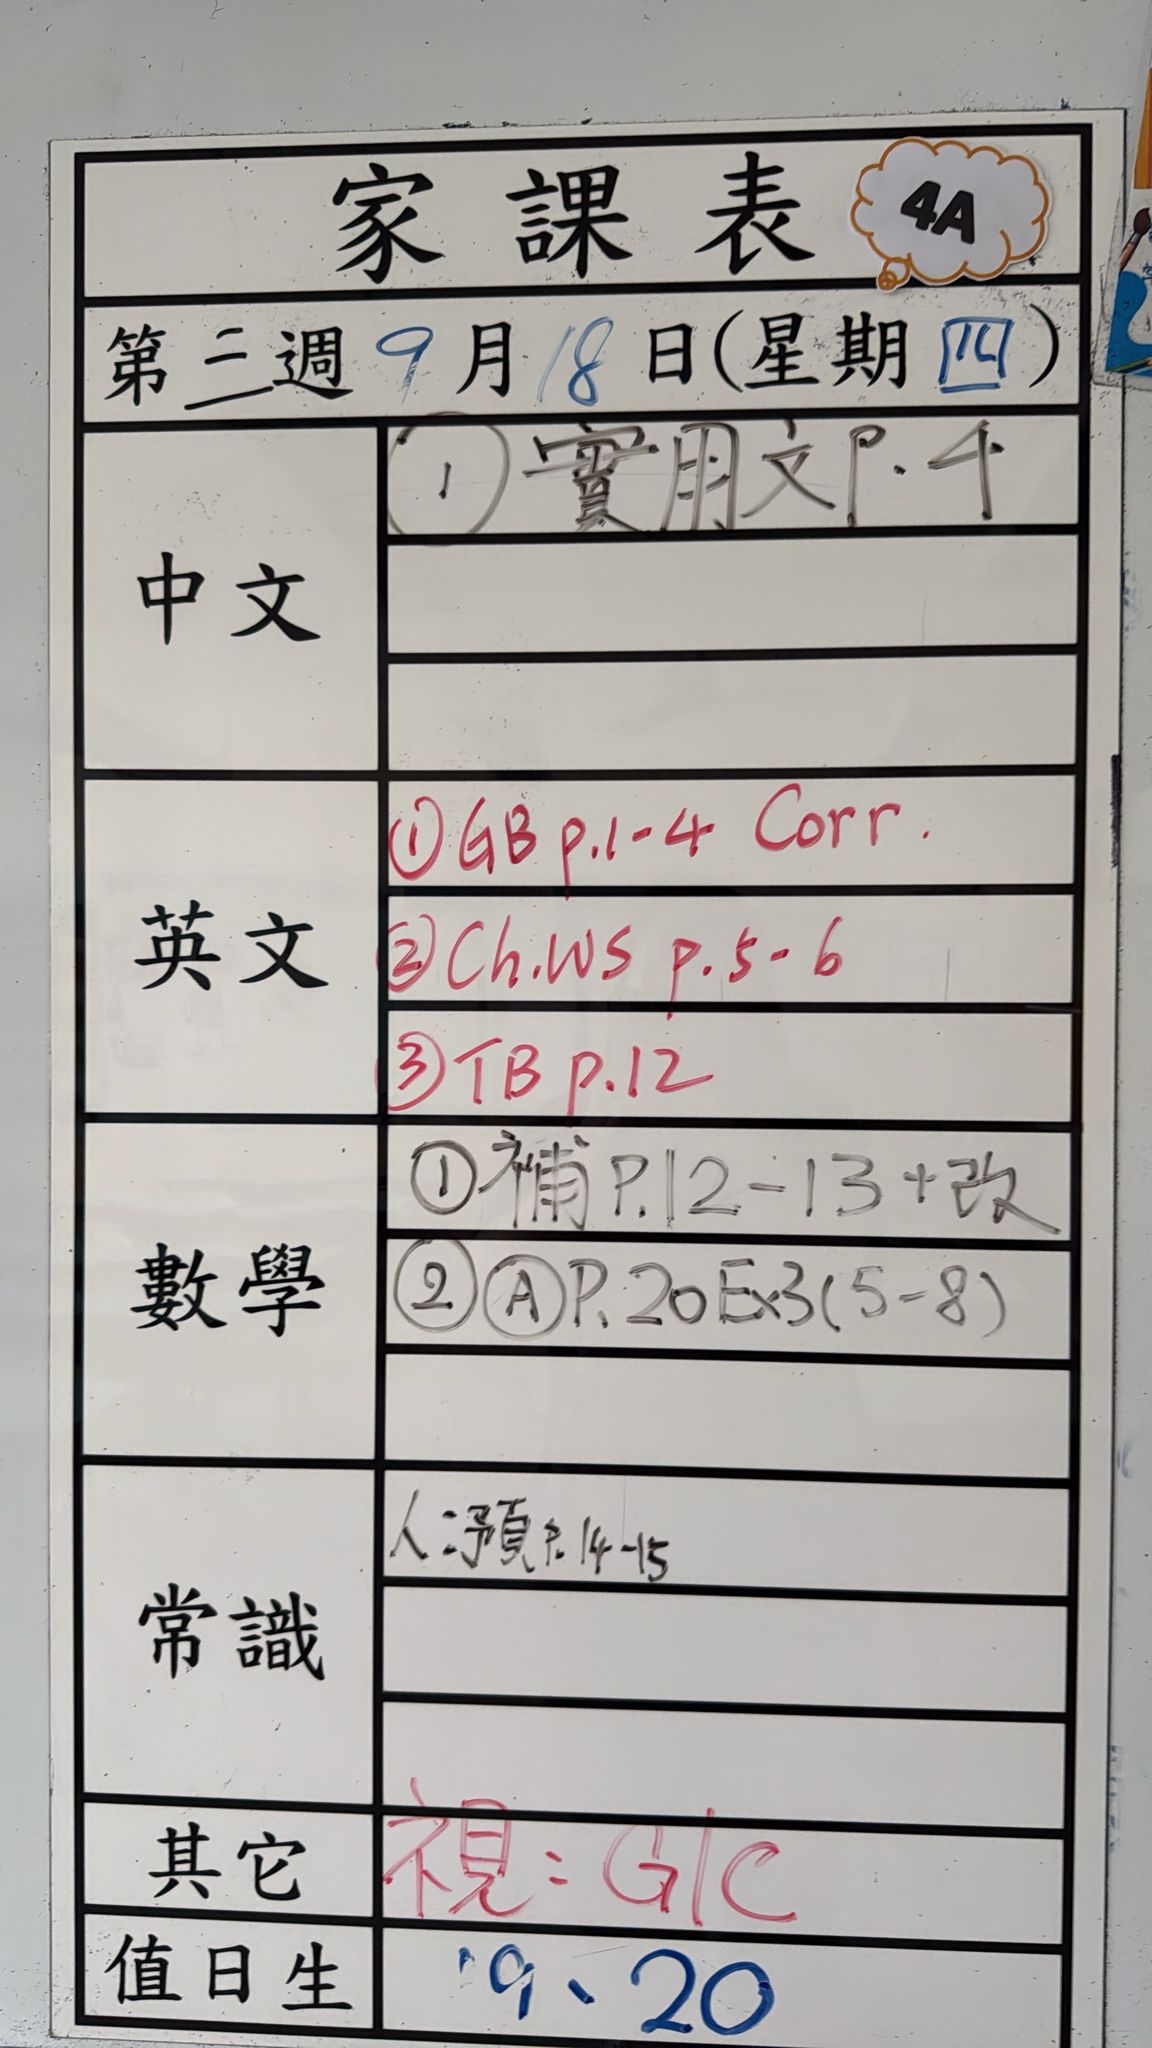 家課表 4A
第三週 9月18日(星期四)
中文
①實用文P.4
英文
①GB p.1-4 Corr.
②Ch.WS p.5-6
③TB p.12
數學
①補P.12-13+改
②ⒶP.20Ex3(5-8)
常識
人:預P.14-15
其它
視:G/C
值日生
19、20